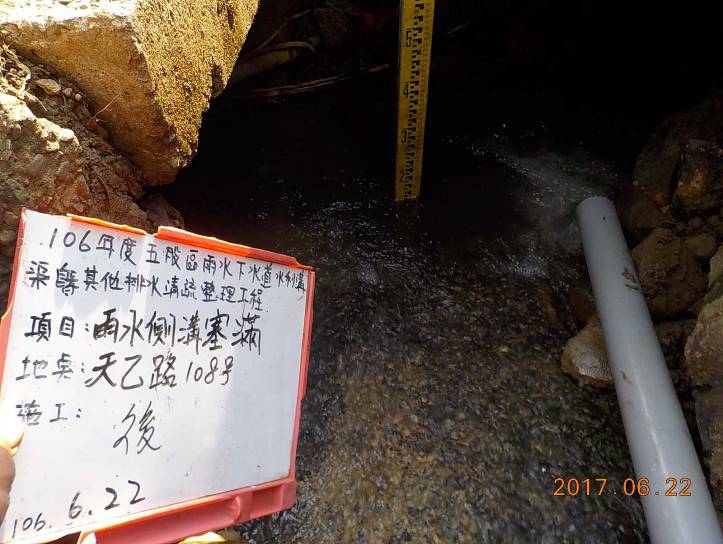 106年度五股區雨水下水道水利溝
渠暨其他排水清疏整理工程
項目:雨水側溝塞滿
地點:天乙路108号
施工:
後
106.6.22
5
4
3
2
2017.06.22